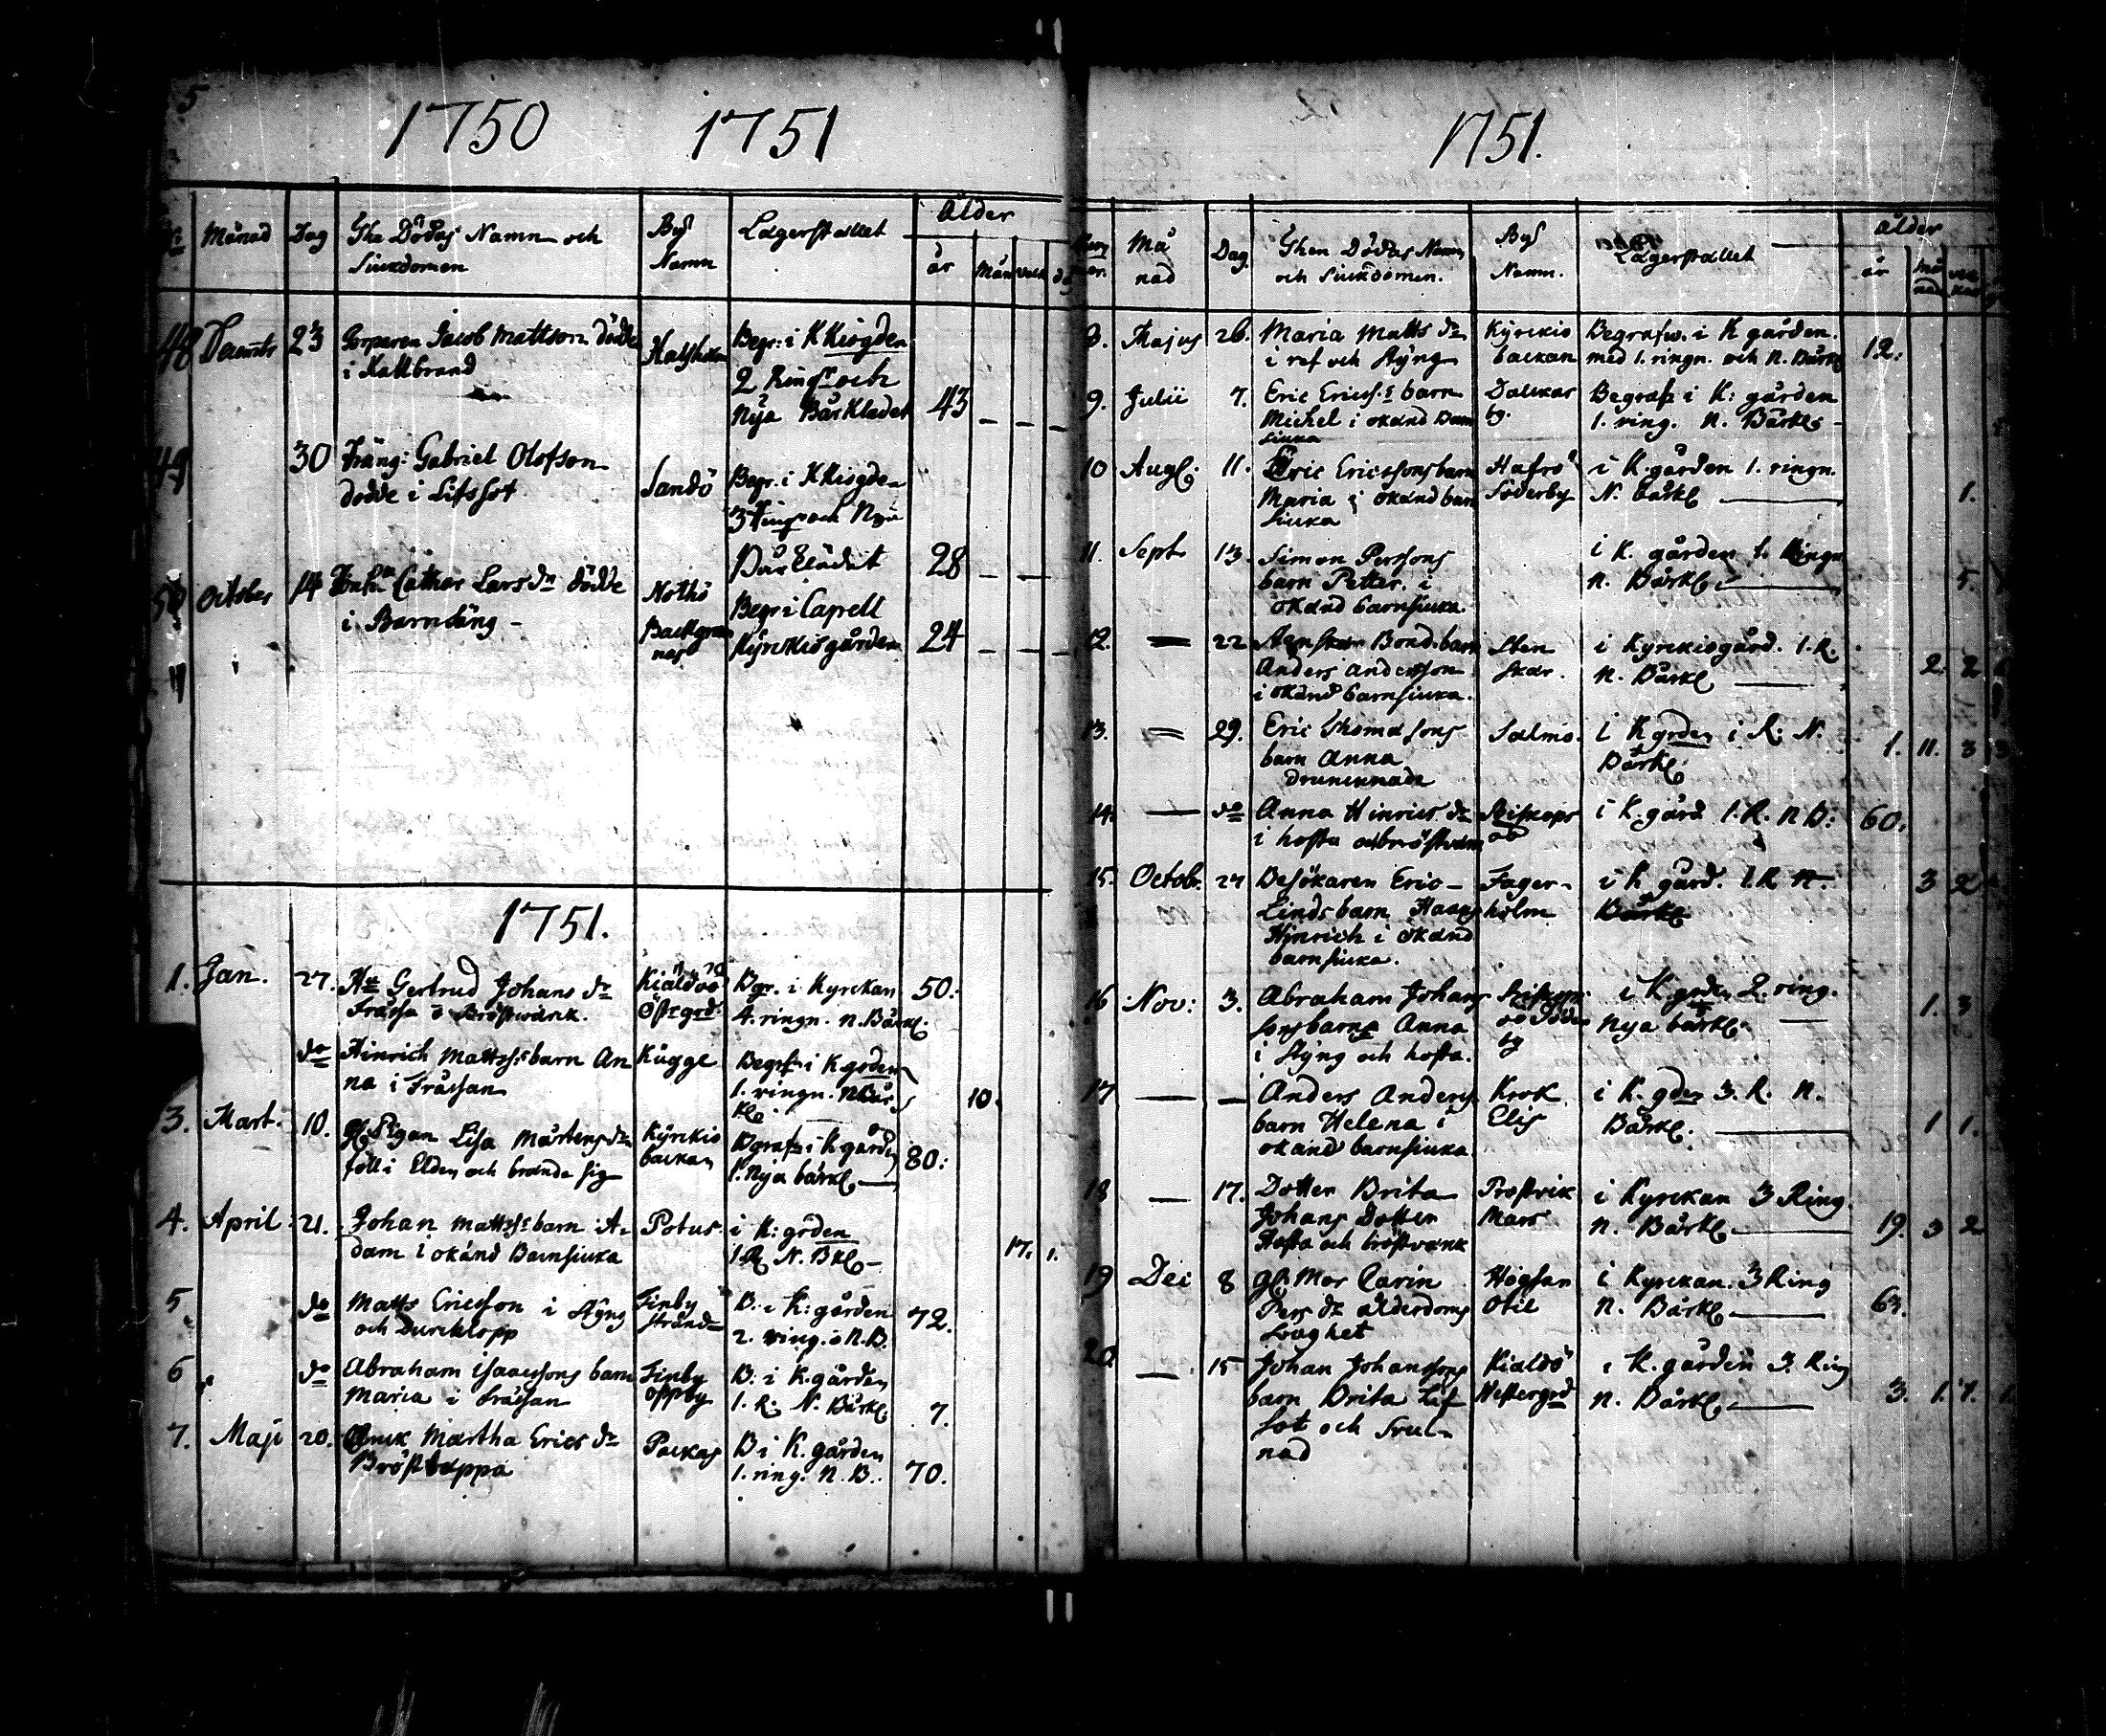 5
1750 1751
No Månad Dag The Dödas Namn och Siukdomen
Bys Namn
Lägerstället
ålder
år Mån veck dag
48 Decembr 23 Corperen Jacob Mattson dödde
i Kallbrand
Begr: i K Kiogden
2 Ring:r och
Nya Bårklädet 43 – – –
49 30 Gabriel Olofson
dödde i Lifssot
Sandö
Begr. i K Kiogden
3 och Nya
Bårklädet 28 – –
50 October 14 Cathar Larsdr dödde
i Barnsäng –
Nothö
Begr i Capell
Kÿrckiogården 24 – – –
1751.
1. Jan. 27. Gertrud Johans dr
Fråssa o Bröstwärk.
Kiäldöö
östrgrd.
Bgr. i Kyrckan
4. ringn. n. Bårkl. 50.
do Hinrich Mattss:s barn An
na i Fråssan
Kügge
Begrfs i K grden
1. ringn. N Bår
kl. 10.
3. Mart. 10. Pigan Lisa Mårtens dr
föll i Elden och brände sig
Kÿrckio
backan
Bgrafs i K gården
1. Nya bårkl. 80.
4. April. 21. Johan Mattss:s barn A-
dam i okänd Barnsiuka
Potus.
i K: grden
1 R N. Bkl – 17. 1.
5. do Matts Ericsson i Stÿng
och Durcklopp
Finby
strand
B: i K: gården
2. ring. o N. B. 72.
6 do Abraham Isaacssons barn
Maria i Fråssan
Finby
oppby
B: i K. gården
1. R. N. Bårkl. 7.
7. Maji 20. Enck Martha Erics dr
Pockas
B i K. gården
1. ring. N. B. 70.
1751.
Num
mer. Må
nad Dag. Then Dödas Namn
och Siukdomen.
Bys
Namn.
Lägerstället
ålder
år må
nad vec
kor
8. Majus 26. Maria Matts dr
i ref och Stÿng
Kÿrckio
backan
Begrafw. i K gården.
med 1. ringn. och N. Bårkl 12.
9. Julii 7. Eric Ericss:s barn
Michel i okänd Barn
siuka
Dalckar
by.
Begrafs i K: gården
1. ring. N. Bårkl –
10 Aug. 11. Eric Ericssons barn
Maria i okänd barn
siuka
Hafrö
Söderby
i K. gården 1. ringn.
N. bårkl 1.
11. Sept 13. Simon Perssons
barn Petter i
okänd barnsiuka.
i K. gården 1. Ringn
N. Bårkl. 5.
12. — 22. Bond. barn
Anders Andersson
i okänd barnsiuka.
Sten
skär.
i Kyrckiogård. 1. R.
N. Bårkl 2. 2
13. = 29. Eric Thomassons
barn Anna
drunknade
Salmo.
i K grden i R. N.
Bårkl. 1. 11. 3 3
14. — do Anna Hinrics dr
i hosta och bröstvärk
Biskops
öö
i K. gård 1. R. N B: 60.
15. Octob. 27 Besökaren Eric
Linds barn Haans
Hinrich i okänd
barnsiuka.
Fager-
holm
i K gård. 1. R N.
Bårkl. 3 2
16 Nov: 3. Abraham Johans
sons barn Anna
i Stÿng och hosta.
Biskops
öö Söder
by
i K. grden 2. ring.
Nya bårkl. 1. 3
17 — — Anders Anderss
barn Helena i
okänd barnsiuka
Krok
Elis
i K. gden 3. R. N.
Bårkl. 1 1.
18 — 17. Dotter Brita
Johans Dotter
Hosta och bröstvärk
Prostvik
Mars
i Kyrckan 3 Ring.
N. Bårkl 19. 3 2
19 Dec 8 gl. Mor Carin
Pers dr ålderdoms
swaghet
Högsar
Otil
i Kyrckan. 3 Ring
N. Bårkl 63.
20 — 15 Johan Johanssons
barn Brita Lif
sot och Swul-
nad
Kialdö
Westergrd
i K. gården 3. Ring
N. Bårkl. 3. 1. 1.